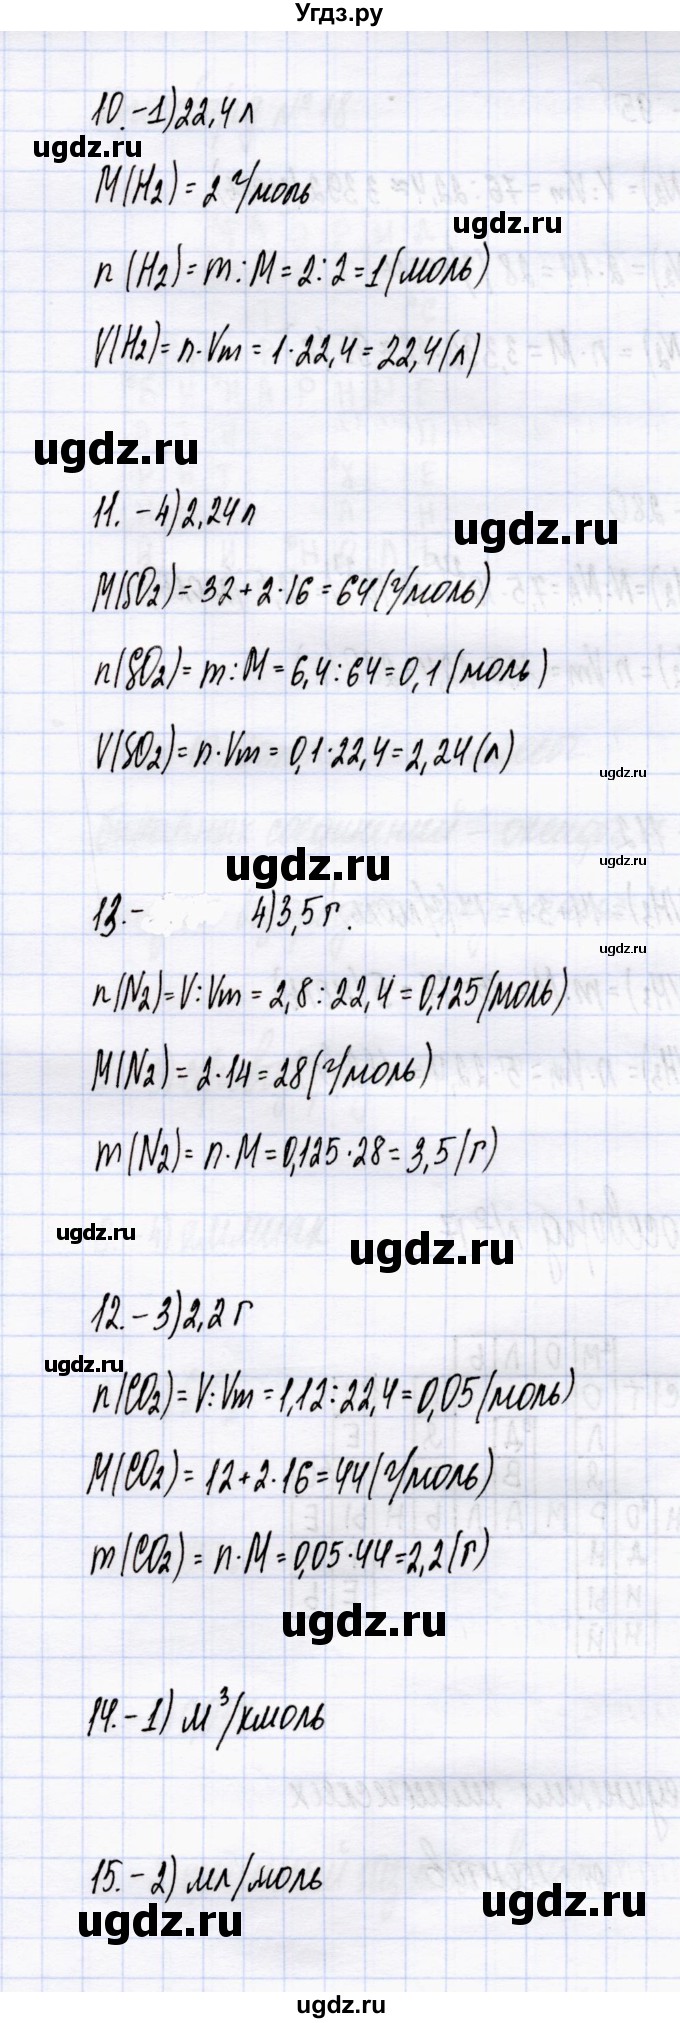 Угдз.ру
10.-1)22,4л
ugdz.ru
M(H₂)=2 г/моль
ugdz.ru
n(H₂)=m:M=2:2=1(моль)
V(H₂)=n·Vm=1·22,4=22,4(л)
ugdz.ru
11.-4)2,24л
ugdz.ru
M(SO₂)=32+2·16=64(г/моль)
n(SO₂)=m:M=6,4:64=0,1(моль)
V(SO₂)=n·Vm=0,1·22,4=2,24(л)
ugdz.ru
ugdz.ru
ugdz.ru
13.- 4)3,5г.
ugdz.ru
n(N₂)=V:Vm=2,8:22,4=0,125(моль)
M(N₂)=2·14=28(г/моль)
m(N₂)=n·M=0,125·28=3,5(г)
ugdz.ru
ugdz.ru
12.-3)2,2г
ugdz.ru
n(CO₂)=V:Vm=1,12:22,4=0,05(моль)
M(CO₂)=12+2·16=44(г/моль)
m(CO₂)=n·M=0,05·44=2,2(г)
ugdz.ru
14.-1) м³/кмоль
15.-2) мл/моль
ugdz.ru
ugdz.ru
ugdz.ru